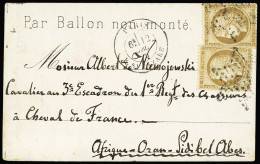 Par Ballon non monté.
PARIS
Monsieur Albert de Niemojewski
Cavalier au 3e Escadron du 1er Regt des Chasseurs
à Cheval de France,
Afrique-Oran-Sidi bel Abes.